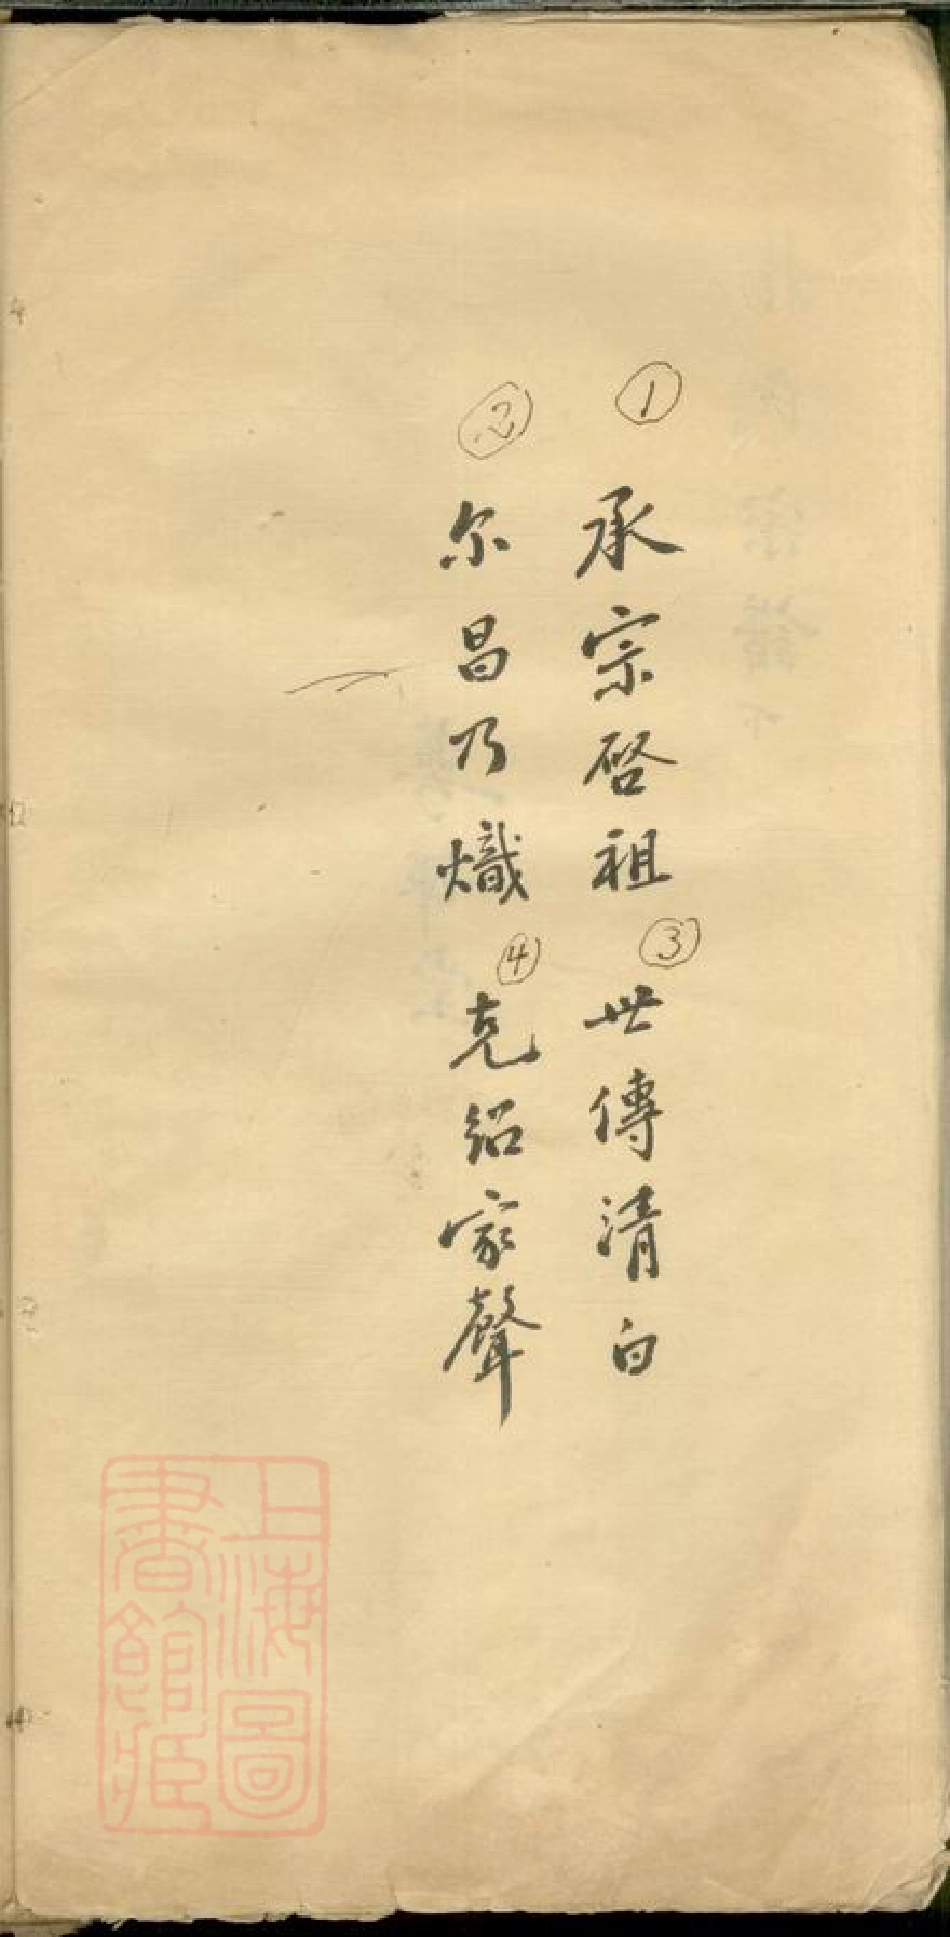 ① 承宗啓祖 ③ 世傳清白
② 尔昌乃熾 ④ 克紹家聲
上海圖
書館藏